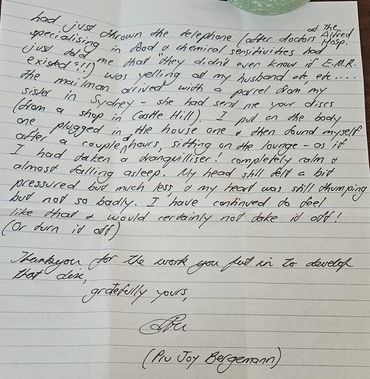 had just thrown the telephone (after doctors at The Alfred Hosp.
specialising in food & chemical sensitivities had
just told me that "they didn't even know if E.M.R.
existed"!!) was yelling at my husband etc etc....
the mailman arrived with a parcel from my
sister in Sydney - she had sent me your discs
(from a shop in Castle Hill). I put on the body
one & plugged in the house one & then found myself
after a couple hours, sitting on the lounge - as if
I had taken a tranquilliser! completely calm &
almost falling asleep. My head still felt a bit
pressured but much less & my heart was still thumping
but not so badly. I have continued to feel
like that & would certainly not take it off!
(Or turn it off)
Thankyou for the work you put in to develop
that disc,
gratefully yours,
Pru
(Pru Joy Bergemann)